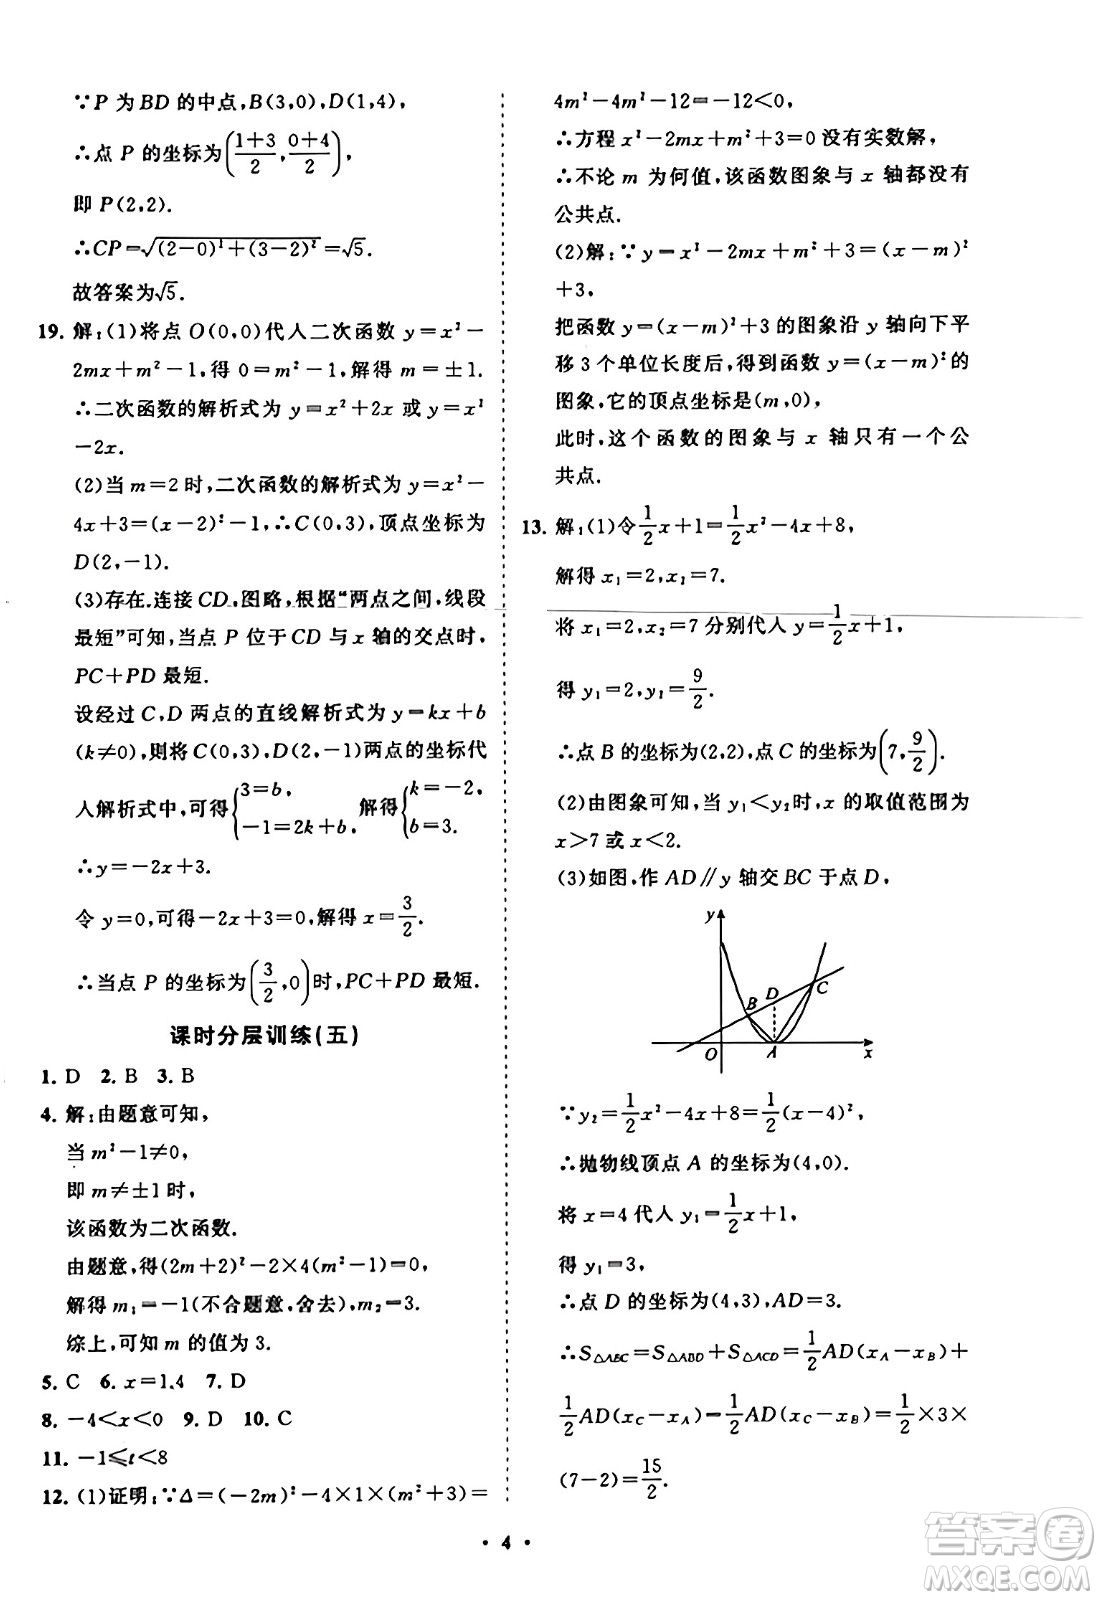 ∵P 为 BD 的中点,B(3,0),D(1,4),
∴点 P 的坐标为((1+3)/2,(0+4)/2),
即 P(2,2).
∴CP=√((2-0)²+(3-2)²)=√5.
故答案为√5.
19. 解:(1)将点 O(0,0)代人二次函数 y=x²-
2mx+m²-1,得 0=m²-1,解得 m=±1.
∴二次函数的解析式为 y=x²+2x 或 y=x²
-2x.
(2)当 m=2 时,二次函数的解析式为 y=x²-
4x+3=(x-2)²-1,∴C(0,3),顶点坐标为
D(2,-1).
(3)存在.连接 CD,图略,根据“两点之间,线段
最短”可知,当点 P 位于 CD 与 x 轴的交点时,
PC+PD 最短.
设经过 C,D 两点的直线解析式为 y=kx+b
(k≠0),则将 C(0,3),D(2,-1)两点的坐标代
人解析式中,可得{3=b, -1=2k+b, 解得{k=-2, b=3.
∴y=-2x+3.
令 y=0,可得-2x+3=0,解得 x=3/2.
∴当点 P 的坐标为(3/2,0)时,PC+PD 最短.
课时分层训练(五)
1. D 2. B 3. B
4. 解:由题意可知,
当 m²-1≠0,
即 m≠±1 时,
该函数为二次函数.
由题意,得(2m+2)²-2×4(m²-1)=0,
解得 m₁=-1(不合题意,舍去),m₂=3.
综上,可知 m 的值为 3.
5. C 6. x=1,4 7. D
8. -4<x<0 9. D 10. C
11. -1≤t<8
12. (1)证明:∵Δ=(-2m)²-4×1×(m²+3)=
4m²-4m²-12=-12<0,
∴方程 x²-2mx+m²+3=0 没有实数解,
∴不论 m 为何值,该函数图象与 x 轴都没有
公共点.
(2)解:∵y=x²-2mx+m²+3=(x-m)²
+3,
把函数 y=(x-m)²+3 的图象沿 y 轴向下平
移 3 个单位长度后,得到函数 y=(x-m)²的
图象,它的顶点坐标是(m,0),
此时,这个函数的图象与 x 轴只有一个公
共点.
13. 解:(1)令1/2x+1=1/2x²-4x+8,
解得 x₁=2,x₂=7.
将 x₁=2,x₂=7 分别代人 y=1/2x+1,
得 y₁=2,y₂=9/2.
∴点 B 的坐标为(2,2),点 C 的坐标为(7,9/2).
(2)由图象可知,当 y₁<y₂时,x 的取值范围为
x>7 或 x<2.
(3)如图,作 AD∥y 轴交 BC 于点 D,
y
B D C
O A x
∵y₂=1/2x²-4x+8=1/2(x-4)²,
∴抛物线顶点 A 的坐标为(4,0).
将 x=4 代人 y₁=1/2x+1,
得 y₁=3,
∴点 D 的坐标为(4,3),AD=3.
∴S△ABC=S△ABD+S△ACD=1/2AD(x_A-x_B)+
1/2AD(x_C-x_A)=1/2AD(x_C-x_B)=1/2×3×
(7-2)=15/2.
·4·
答案圈
MXQE.COM